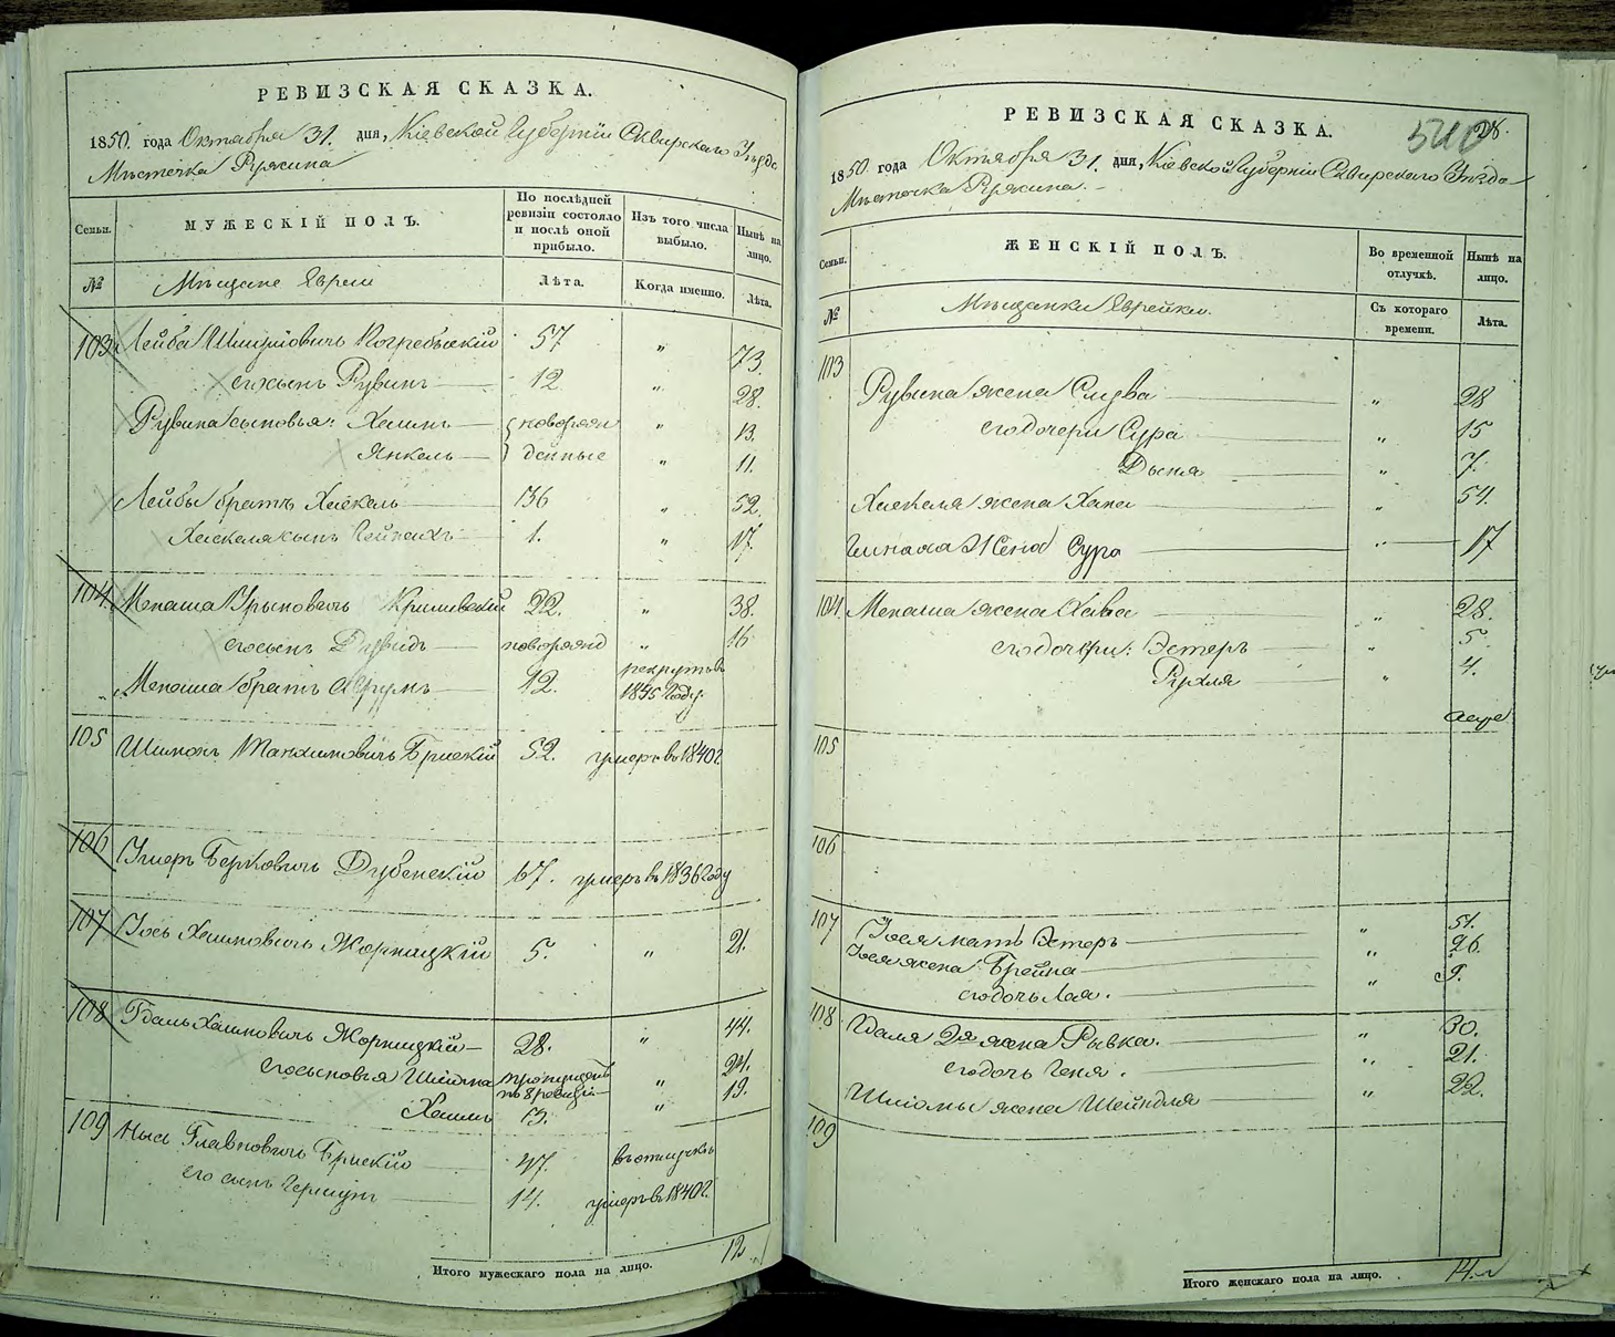 РЕВИЗСКАЯ СКАЗКА.
1850. года Октября 31. дня, Кіевской Губерніи Сквирскаго Уѣзда
Мѣстечка Ружина
Семьи.
МУЖЕСКІЙ ПОЛЪ.
По послѣдней ревизіи состояло и послѣ оной прибыло.
Изъ того числа выбыло.
Нынѣ на лицо.
№
Мѣщане Евреи
Лѣта.
Когда именно.
Лѣта.
103 Лейба Шмулiовичь Погребыскій 57 " 73.
его сынъ Рувинъ 12 " 28.
Рувина сыновья: Хаимъ новорож " 13.
Янкель денные " 11.
Лейбы братъ Хаскель 36 " 52.
Хаскеля сынъ 1. " 17.
104. Менаша Срыловичь 22. " 38.
его сынъ Дувидъ новорожд " 16
Менаша братъ 12. рекрутъ въ
1845 Году.
105 Шимонъ Брискій 52. умеръ въ 1840 г.
106 Берковичь Дубенскій 67. умеръ въ 1836 Году
107 Іось Хаимовичь Жорницкій 5. " 21.
108 Гдаль Хаимовичь Жорницкій 28. " 44.
его сыновья Шлiома пропущенъ
по 8 ревизіи " 24.
Хаимъ 3. " 19.
109 Брискій 47. въ отлучкѣ
его сынъ 14. умеръ въ 1840 г.
Итого мужескаго пола на лицо. 12
РЕВИЗСКАЯ СКАЗКА.
28.
1850 года Октября 31. дня, Кіевской Губерніи Сквирскаго Уѣзда
Мѣстечка Ружина.
Семьи.
ЖЕНСКІЙ ПОЛЪ.
Во временной отлучкѣ.
Нынѣ на лицо.
№
Мѣщанки Еврейки.
Съ котораго времени.
Лѣта.
103
Рувина жена Слува " 28
его дочери Сура " 15
Дыня " 7.
Хаскеля жена Хана " 54.
жена Сура " 17
104. Менаша жена Хава " 28.
его дочери: Эстеръ " 5.
Рухля " 4.
105
106
107 Іося мать Эстеръ " 51.
Іося жена Брейна " 26.
его дочь Лея. " 9.
108 Гдаля 2я жена Рывка. " 30.
его дочь Геня. " 21.
Шлiомы жена Шейндля " 22.
109
Итого женскаго пола на лицо. 14.